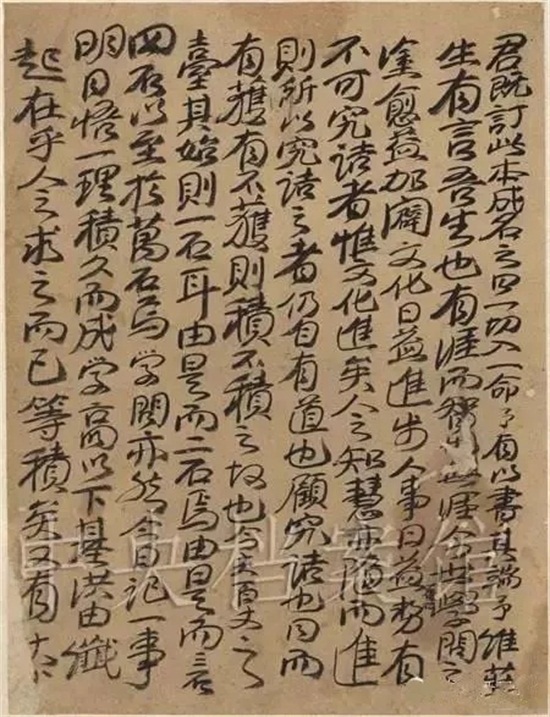 君既訂此本成名之曰一切入一命予有以書其端予維莊
生有言吾生也有涯而智也無涯今世學問之
塗愈益加闢文化日益進步人事日益勢有
不可究詰者惟文化進矣人之知慧亦隨而進
則所以究詰之者仍自有道也顧究詰也同而
有獲有不獲則積不積之故也今夫百丈之
臺其始則一石耳由是而二石焉由是而三
四石以至於萬石焉學問亦然今日記一事
明日悟一理積久而成学高以下基洪由纖
起在乎人之求之而已等積矣又有大
中央档案馆